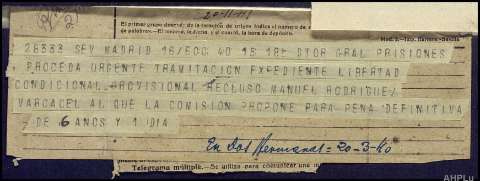 20-11-111
El primer grupo después de la estación de origen indica el número de
de palabras.- El segundo, la hora de depósito.
28333 SEV MADRID 16/ECC 40 15 18= DTOR GRAL PRISIONES
PROCEDA URGENTE TRAMITACION EXPEDIENTE LIBERTAD
CONDICIONAL PROVISIONAL RECLUSO MANUEL RODRIGUEZ
VARCACEL AL QUE LA COMISION PROPONE PARA PENA DEFINITIVA
DE 6 ANOS Y 1 DIA
En Dos Hermanas = 20-3-40
Telegrama múltiple.- Se utiliza para comunicar una
AHPLu